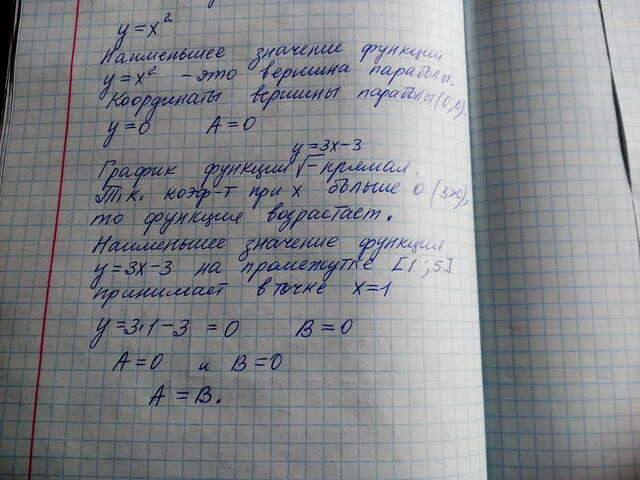 y=x²
Наименьшее значение функции
y=x² - это вершина параболы.
Координаты вершины параболы (0,0).
y=0 A=0
y=3x-3
График функции √- прямая.
Т.к. коэф-т при x больше 0 (3>0),
то функция возрастает.
Наименьшее значение функция
y=3x-3 на промежутке [1;5]
принимает в точке x=1
y=3·1-3=0 B=0
A=0 и B=0
A=B.